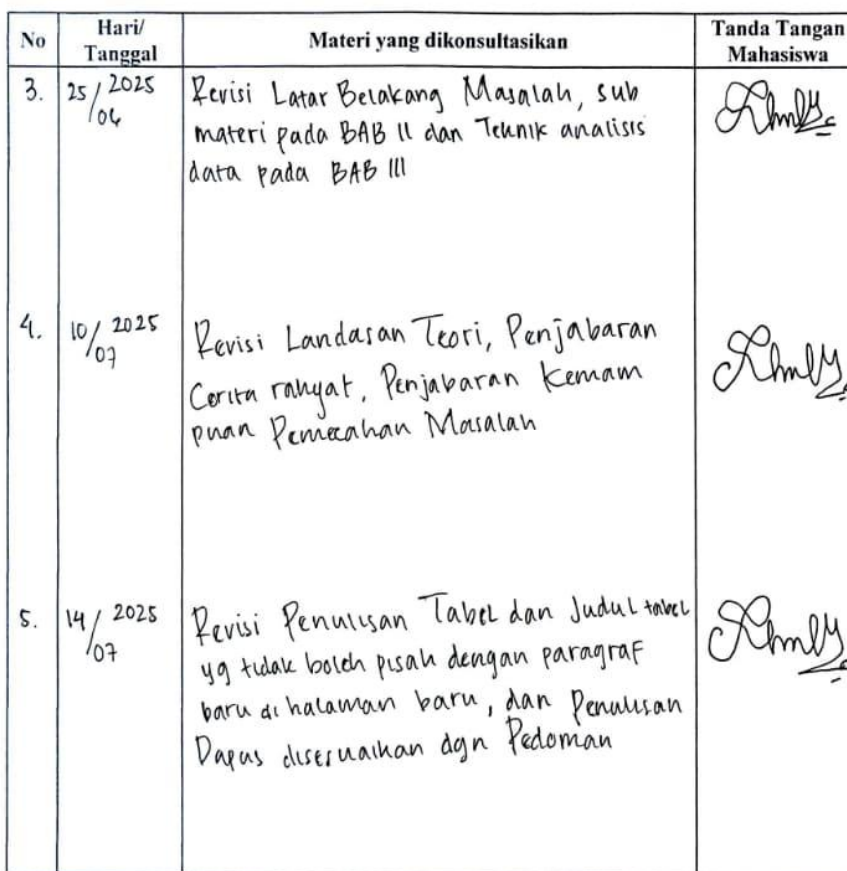 No Hari/ Tanggal Materi yang dikonsultasikan Tanda Tangan Mahasiswa
3. 25/04 2025 Revisi Latar Belakang Masalah, sub
materi pada BAB II dan Teknik analisis
data pada BAB III
4. 10/07 2025 Revisi Landasan Teori, Penjabaran
Cerita rakyat, Penjabaran Kemam
puan Pemecahan Masalah
5. 14/07 2025 Revisi Penulisan Tabel dan Judul tabel
yg tidak boleh pisah dengan paragraf
baru di halaman baru, dan Penulisan
Dapus disesuaikan dgn Pedoman